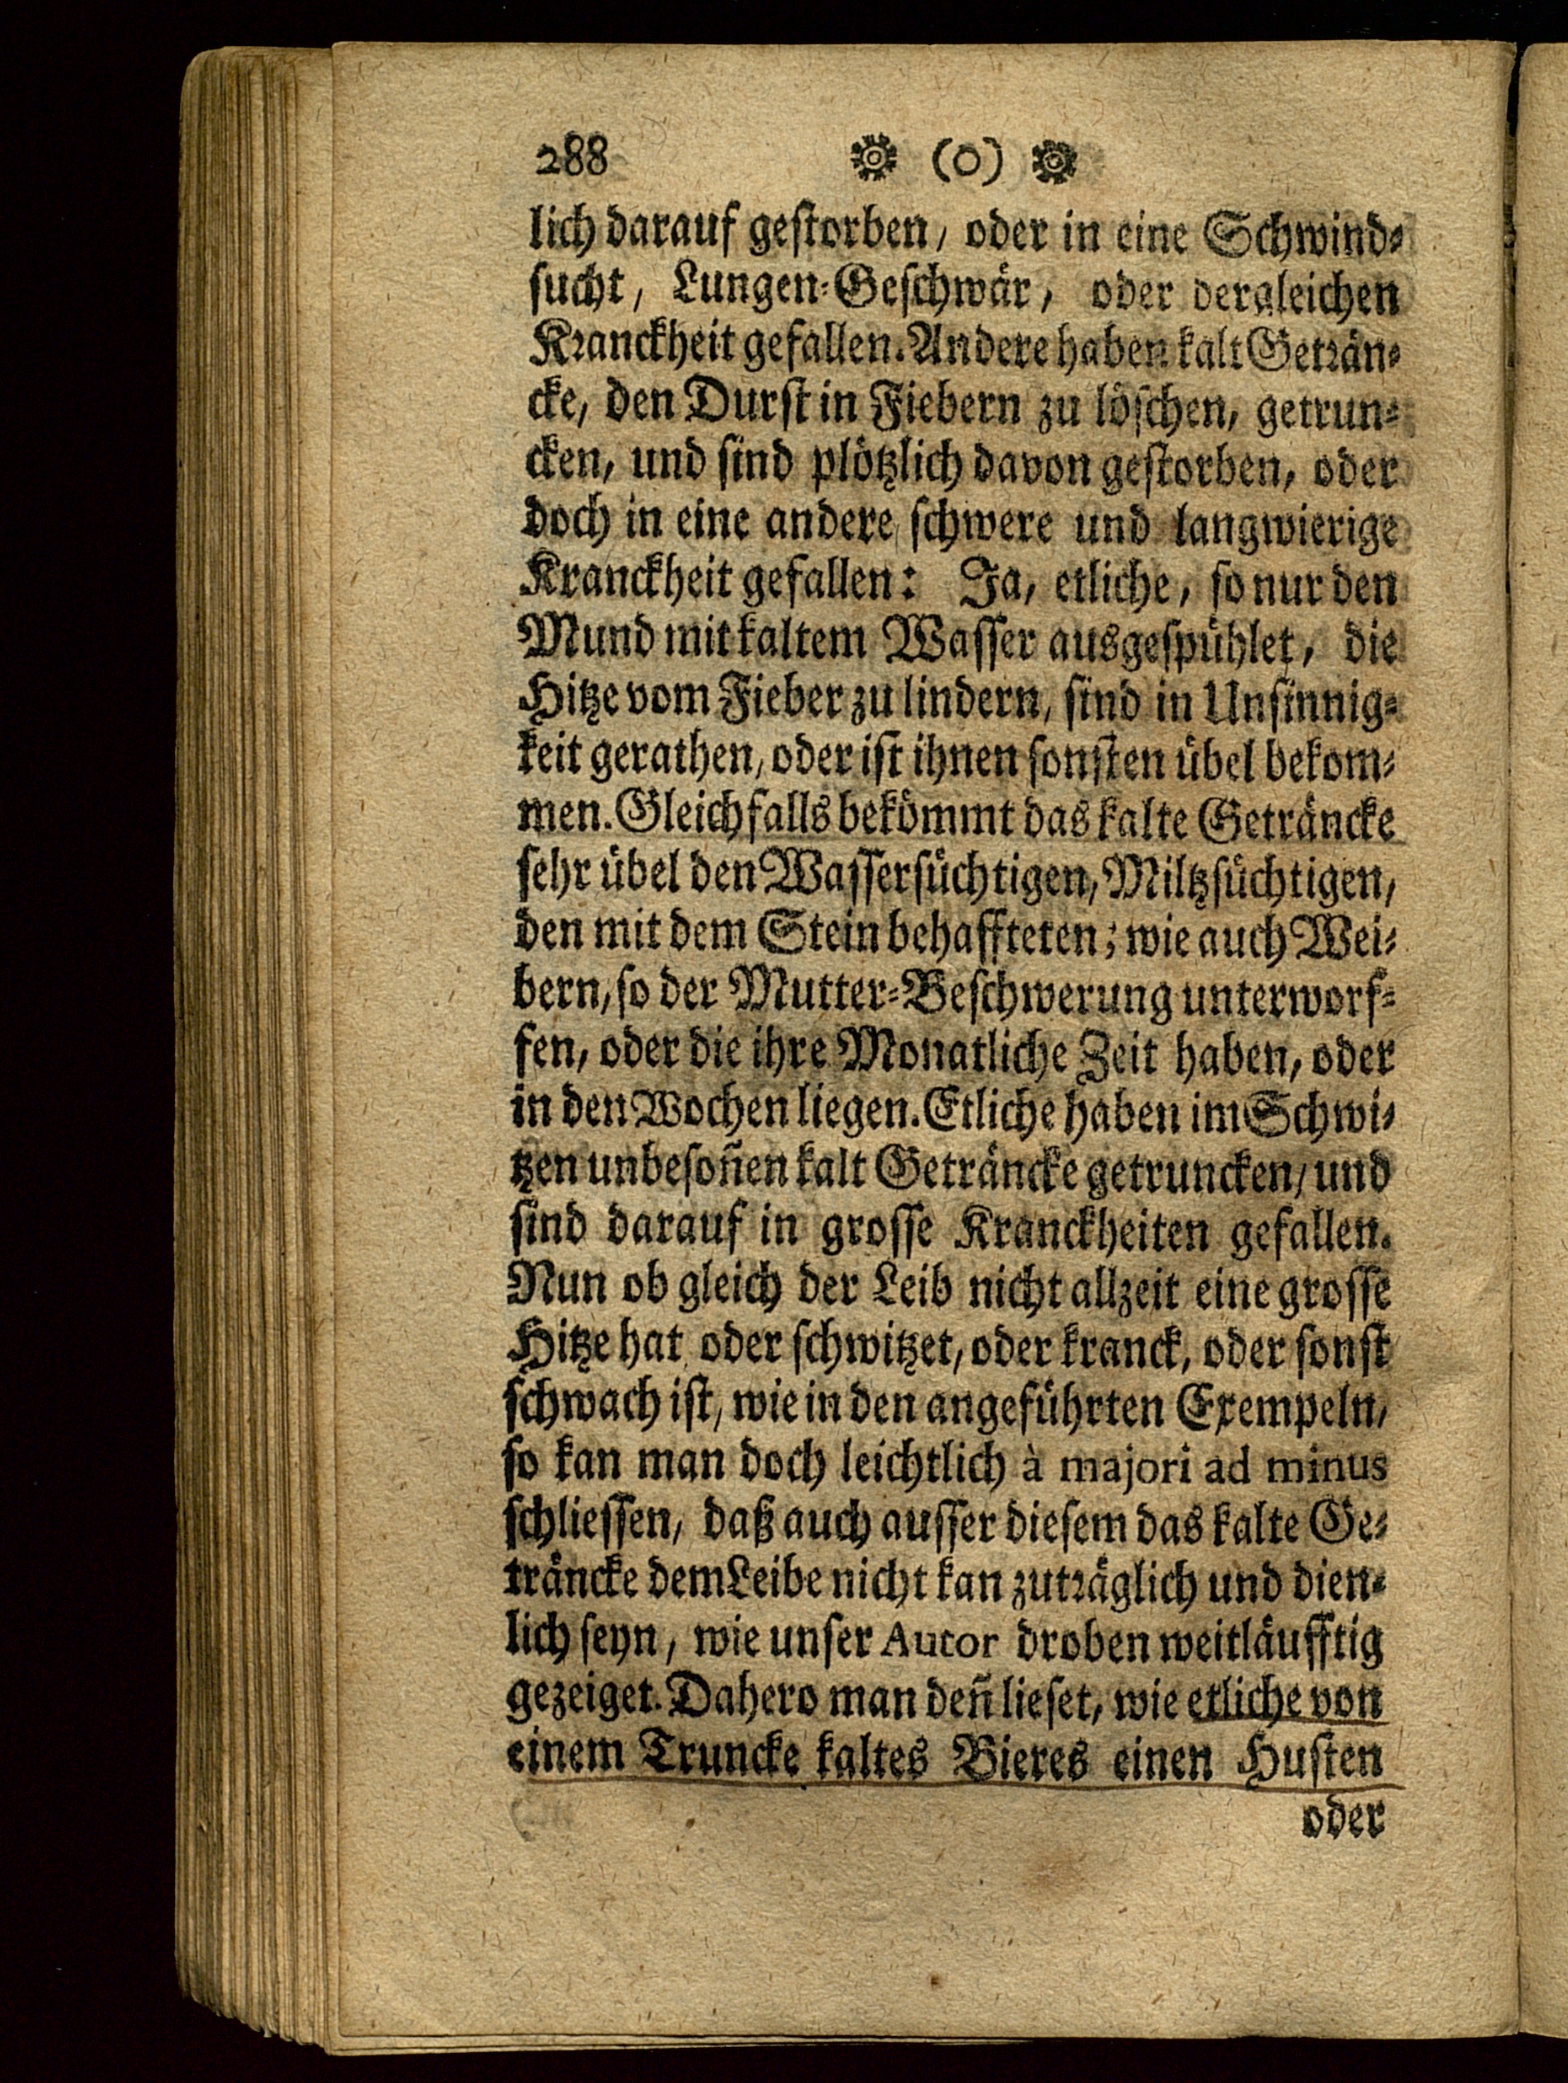 288 (o)
lich darauf gestorben, oder in eine Schwind-
sucht, Lungen-Geschwär, oder dergleichen
Kranckheit gefallen. Andere haben kalt Geträn-
cke, den Durst in Fiebern zu löschen, getrun-
cken, und sind plötzlich davon gestorben, oder
doch in eine andere schwere und langwierige
Kranckheit gefallen: Ja, etliche, so nur den
Mund mit kaltem Wasser ausgespühlet, die
Hitze vom Fieber zu lindern, sind in Unsinnig-
keit gerathen, oder ist ihnen sonsten übel bekom-
men. Gleichfalls bekömmt das kalte Geträncke
sehr übel den Wassersüchtigen, Miltzsüchtigen,
den mit dem Stein behaffteten; wie auch Wei-
bern, so der Mutter-Beschwerung unterworf-
fen, oder die ihre Monatliche Zeit haben, oder
in den Wochen liegen. Etliche haben im Schwi-
tzen unbesoñen kalt Geträncke getruncken/ und
sind darauf in grosse Kranckheiten gefallen.
Nun ob gleich der Leib nicht allzeit eine grosse
Hitze hat oder schwitzet, oder kranck, oder sonst
schwach ist, wie in den angeführten Exempeln,
so kan man doch leichtlich à majori ad minus
schliessen, daß auch ausser diesem das kalte Ge-
träncke dem Leibe nicht kan zuträglich und dien-
lich seyn, wie unser Autor droben weitläufftig
gezeiget. Dahero man deñ lieset, wie etliche von
einem Truncke kaltes Bieres einen Husten
oder